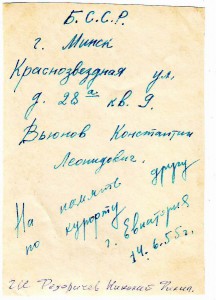 Б.С.С.Р.
г. Минск
Краснозвездная ул.
д. 28а кв. 9.
Вьюнов Константин
Леонидович.
На память другу
по курорту
г. Евпатория
14.6.55г.
Николай